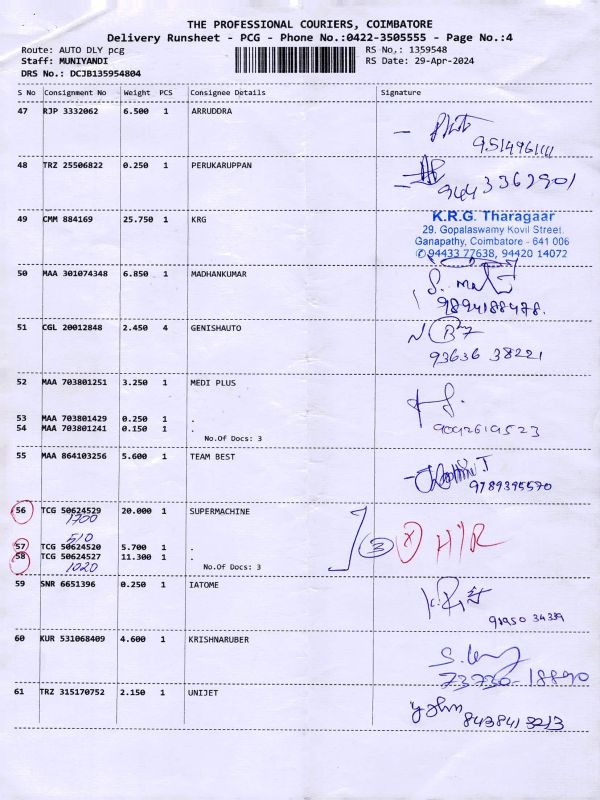 THE PROFESSIONAL COURIERS, COIMBATORE
Delivery Runsheet - PCG - Phone No.:0422-3505555 - Page No.:4
Route: AUTO DLY pcg RS No.: 1359548
Staff: MUNIYANDI RS Date: 29-Apr-2024
DRS No.: DCJB135954804
S No Consignment No Weight PCS Consignee Details Signature
47 RJP 3332062 6.500 1 ARRUDDRA
9514961111
48 TRZ 25506822 0.250 1 PERUKARUPPAN
9443362901
49 CMM 884169 25.750 1 KRG
K.R.G. Tharagaar
29, Gopalaswamy Kovil Street,
Ganapathy, Coimbatore - 641 006
✆ 94433 77638, 94420 14072
50 MAA 301074348 6.850 1 MADHANKUMAR
9894188478.
51 CGL 20012848 2.450 4 GENISHAUTO
93636 38221
52 MAA 703801251 3.250 1 MEDI PLUS
53 MAA 703801429 0.250 1 .
54 MAA 703801241 0.150 1 .
9092619523
No.Of Docs: 3
55 MAA 864103256 5.600 1 TEAM BEST
9789395570
56 TCG 50624529 20.000 1 SUPERMACHINE
1700
510
3 X H/R
57 TCG 50624520 5.700 1 .
58 TCG 50624527 11.300 1 .
1020 No.Of Docs: 3
59 SNR 6651396 0.250 1 IATOME
60 KUR 531068409 4.600 1 KRISHNARUBER
73730-18890
61 TRZ 315170752 2.150 1 UNIJET
8438413213